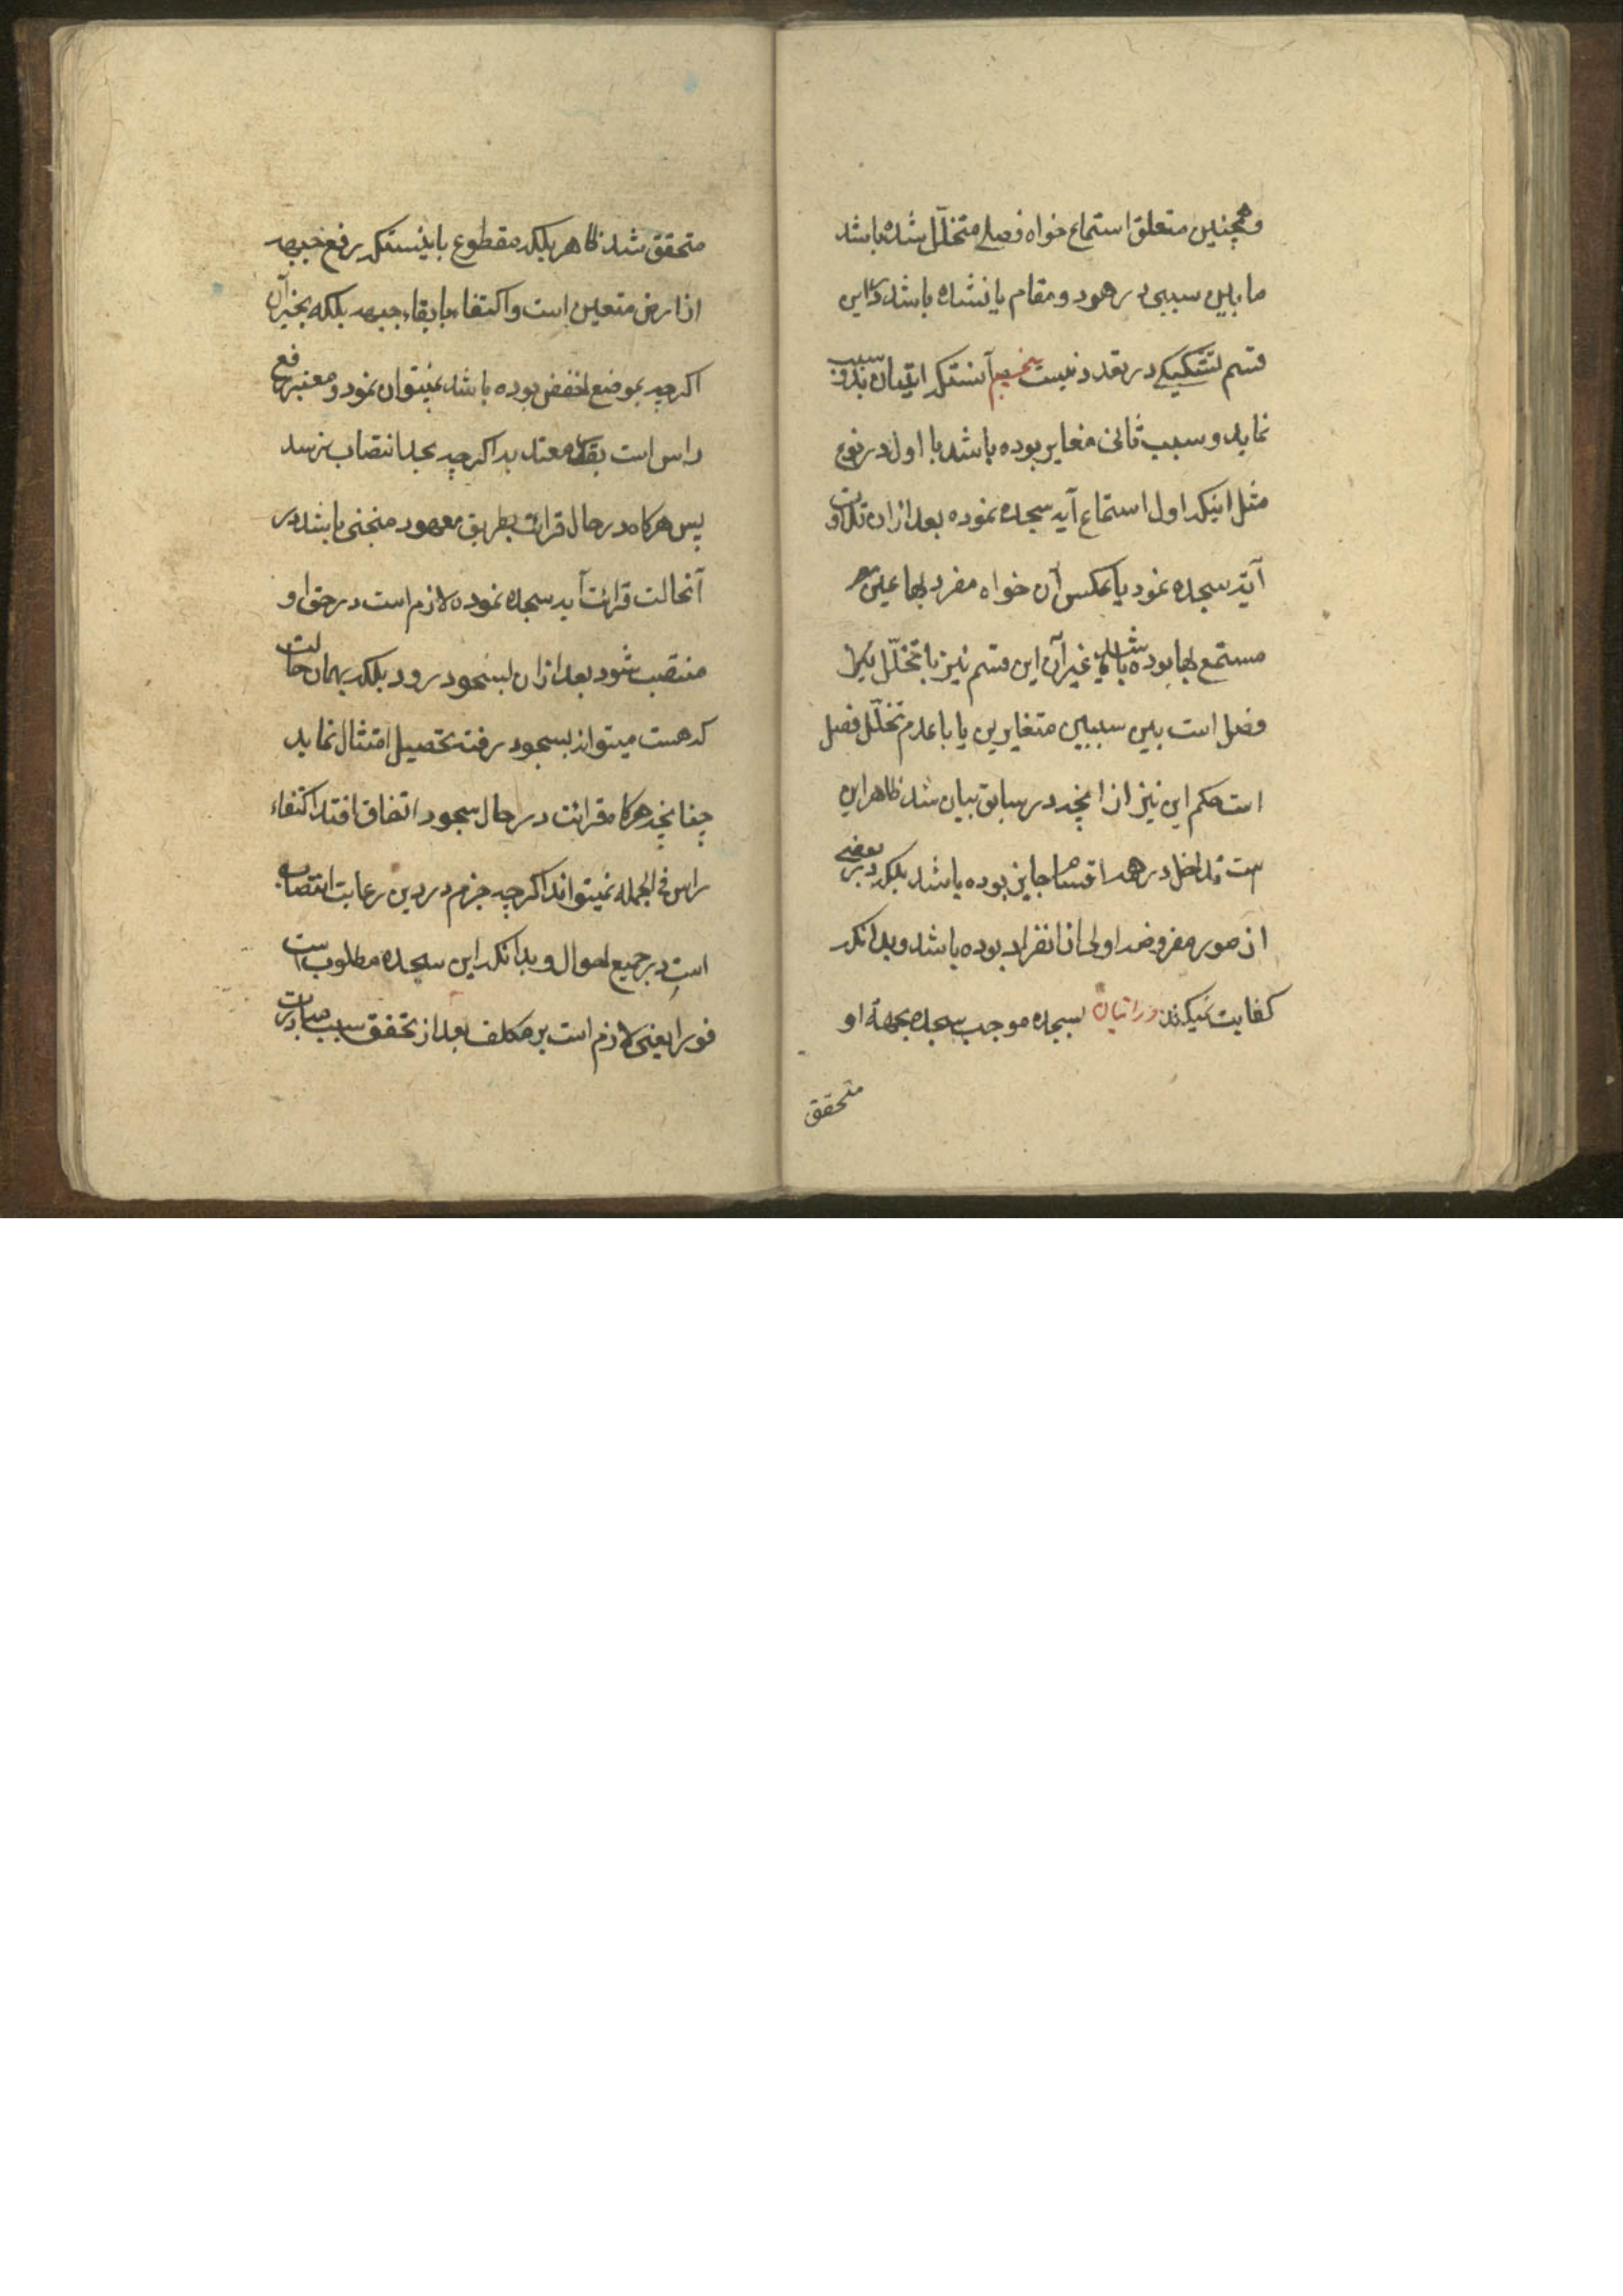 و همچنین متعلق استماع خواه فصلی متخلّل شده باشد
ما بین سببی در هر دو مقام یا نشده باشد در این
قسم تشکیکی در تعدد نیست پنجم آنستکه اتیان بدو سبب
نماید و سبب ثانی مغایر بوده باشد با اول در نوع
مثل اینکه اول استماع آیه سجده نموده بعد از ان تلاوت
آیه سجده نمود یا بعکس آن خواه مفرد بها عین
مستمع بها بوده باشد یا غیر آن این قسم نیز با تخلّل
فصل است بین سببین متغایرین یا با عدم تخلّل فصل
است حکم این نیز از انچه در سابق بیان شد ظاهر این
ست تداخل در همه اقسام جایز بوده باشد بلکه در بعضی
از صور مفروضه اولی از انفراد بوده باشد و بدانکه
کفایت نمیکند در اتیان بسجده موجب سجده بجهة او
متحقق
متحقق شد ظاهر بلکه مقطوع به اینستکه رفع جبهه
از ارض متعین است و اکتفاء بابقاء جبهه بلکه بجرّ آن
اکرچه بموضع اخفض بوده باشد نمیتوان نمود و معتبر رفع
راس است بقدر معتد به اکرچه بحد انتصاب نرسد
پس هرکاه در حال قرائت بطریق معهود منحنی باشد در
آنحالت قرائت آیه سجده نموده لازم است در حق او
منتصب شود بعد از ان بسجود رود بلکه بهمان حالت
که هست میتواند بسجود رفته تحصیل امتثال نماید
چنانچه هرکاه قرائت در حال سجود اتفاق افتد اکتفاء
راس فی الجمله نمیتواند اکرچه جزم در دین رعایت انتصاب
است در جمیع احوال و بدانکه این سجده مطلوب است
فورا یعنی لازم است بر مکلف بعد از تحقق سبب مبادرت